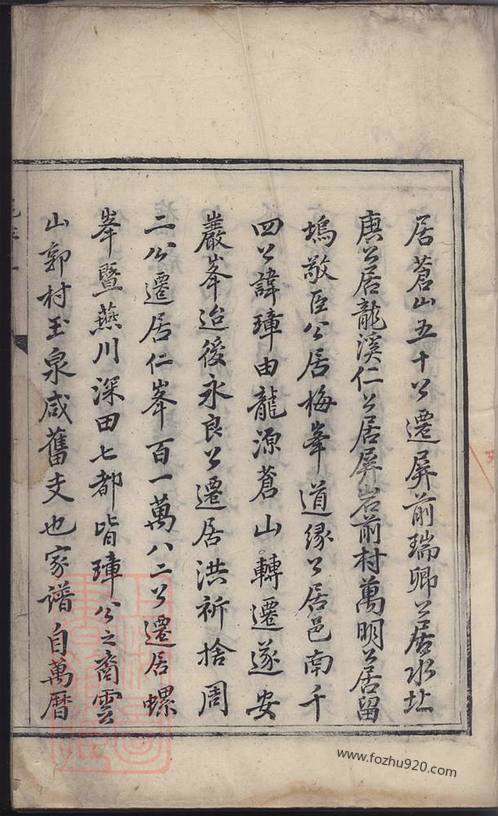 居蒼山五十公遷屏前瑞卿公居水址
庚公居龍溪仁公居屏岩前村萬明公居留
塢敬臣公居梅峯道緣公居邑南千
四公諱璋由龍源蒼山轉遷遂安
巖峯迨後永良公遷居洪祈捨周
二公遷居仁峯百一萬八二公遷居螺
峯暨燕川深田七都皆璋公之裔雲
山郭村玉泉咸舊支也家譜自萬曆
www.fozhu920.com